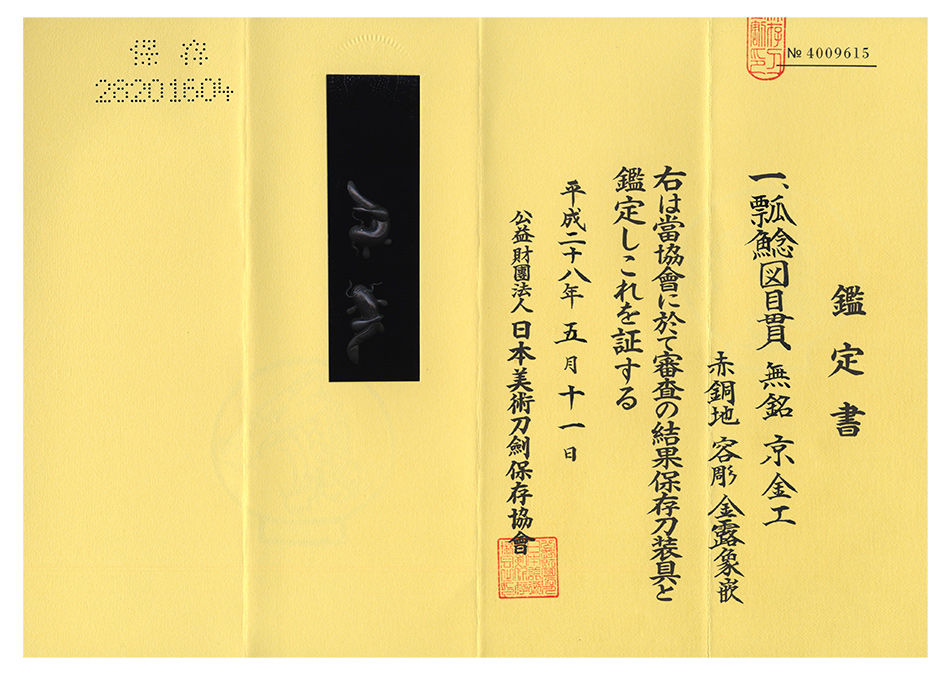 № 4009615
鑑定書
一、瓢鯰図目貫 無銘 京金工
赤銅地 容彫 金露象嵌
右は當協會に於て審査の結果保存刀装具と
鑑定しこれを証する
平成二十八年 五月 十一日
公益財團法人 日本美術刀劍保存協會
保存
28201604